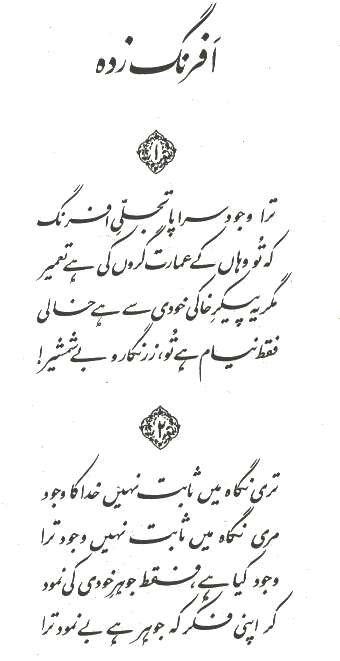 اَفرنگ زدہ
۱
ترا وجود سراپا تجلّیِ افرنگ
کہ تُو وہاں کے عمارت گروں کی ہے تعمیر
مگر یہ پیکرِ خاکی خودی سے ہے خالی
فقط نیام ہے تُو، زرنگار و بے شمشیر!
۲
تری نگاہ میں ثابت نہیں خدا کا وجود
مری نگاہ میں ثابت نہیں وجود ترا
وجود کیا ہے، فقط جوہرِ خودی کی نمود
کر اپنی فکر کہ جوہر ہے بے نمود ترا